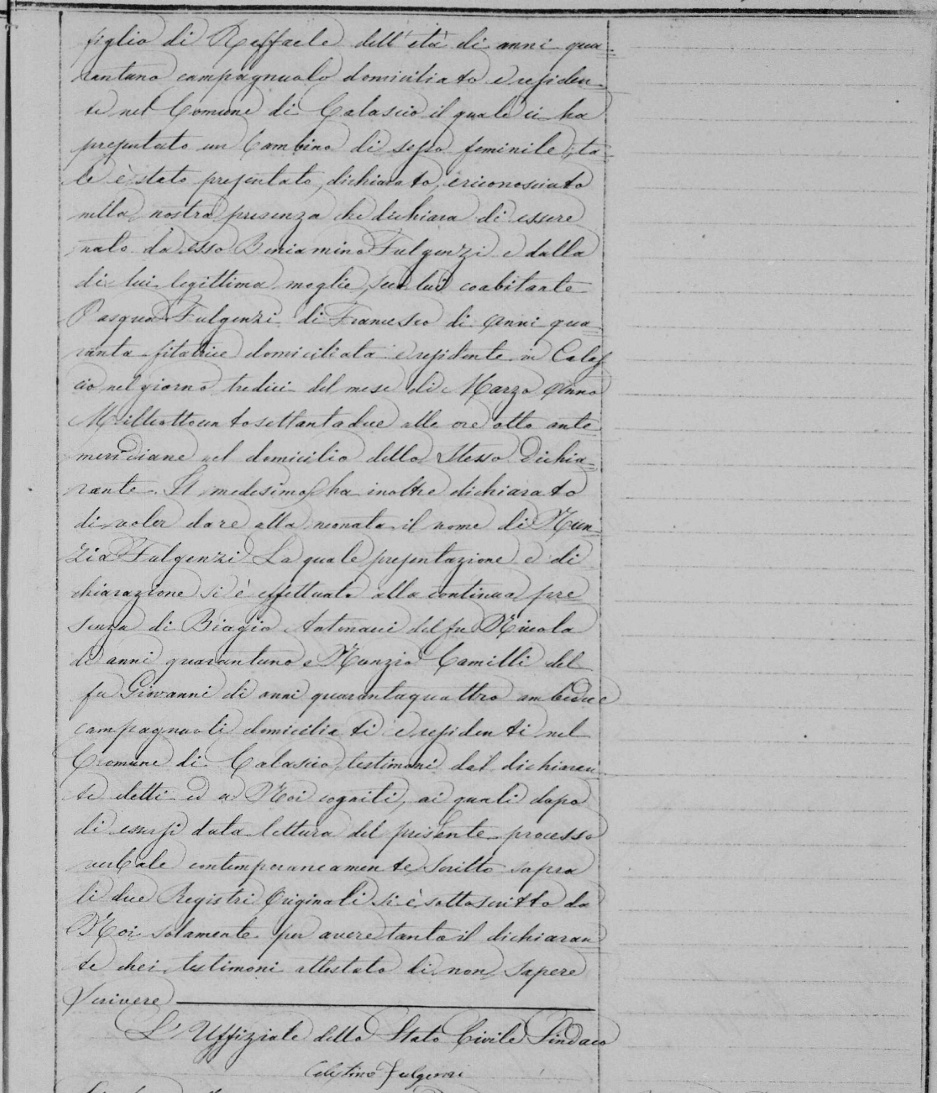 figlio di Raffaele dell'età di anni qua-
rantuno campagnuolo domiciliato e residen-
te nel Comune di Calascio il quale ci ha
presentato un bambino di sesso feminile, ta-
le è stato presentato, dichiarato, e riconosciuto
nella nostra presenza che dichiara di essere
nato da esso Beniamino Fulgenzi e dalla
di lui legittima moglie seco lui coabitante
Pasqua Fulgenzi di Francesco di anni qua-
ranta filatrice domiciliata e residente in Calas
cio nel giorno tredici del mese di Marzo Anno
Milleottocentosettantadue alle ore otto ante
meridiane nel domicilio dello stesso Dichia-
rante. Il medesimo ha inoltre dichiarato
di voler dare alla neonata il nome di Nun-
zia Fulgenzi La quale presentazione e di
chiarazione si è effettuata alla continua pre
senza di Biagio Antonacci del fu Nicola
di anni quarantuno e Nunzio Camilli del
fu Giovanni di anni quarantaquattro ambidue
campagnuoli domiciliati e residenti nel
Comune di Calascio, testimoni dal dichiaran
te eletti ed a Noi cogniti, ai quali dopo
di essersi data lettura del presente processo
verbale contemporaneamente scritto sopra
li due Registri Originali si è sottoscritto da
Noi solamente per avere tanto il dichiaran
te che i testimoni attestato di non sapere
scrivere
L'Uffiziale dello Stato Civile Sindaco
Celestino Fulgenzi